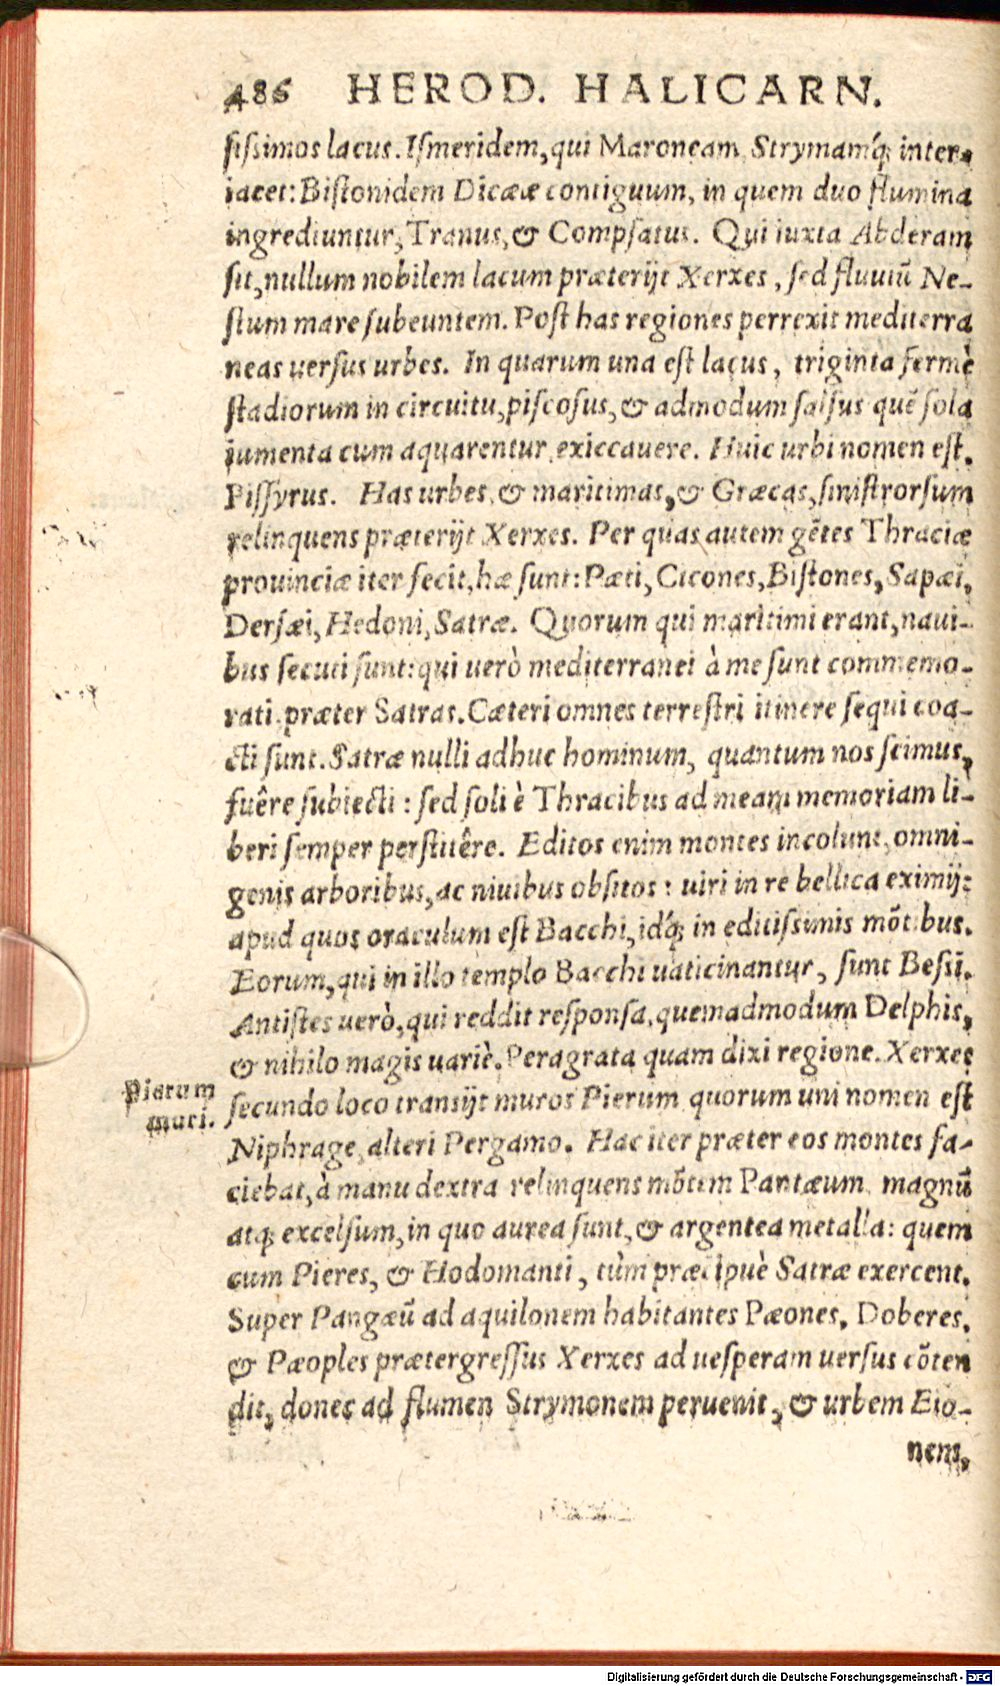 486 HEROD. HALICARN.
sissimos lacus. Ismeridem, qui Maroneam, Strymamq́; inter-
iacet: Bistonidem Dicææ contiguum, in quem duo flumina
ingrediuntur, Tranus, & Compsatus. Qui iuxta Abderam
sit, nullum nobilem lacum præterijt Xerxes, sed fluuiū Ne-
stum mare subeuntem. Post has regiones perrexit mediterra
neas uersus urbes. In quarum una est lacus, triginta fermè
stadiorum in circuitu, piscosus, & admodum salsus quē sola
iumenta cum aquarentur, exiccauere. Huic urbi nomen est.
Pissyrus. Has urbes, & maritimas, & Græcas, sinistrorsum
relinquens præterijt Xerxes. Per quas autem gētes Thraciæ
prouinciæ iter fecit, hæ sunt: Pæti, Cicones, Bistones, Sapæi,
Dersæi, Hedoni, Satræ. Quorum qui maritimi erant, naui-
bus secuti sunt: qui uerò mediterranei à me sunt commemo-
rati, præter Satras. Cæteri omnes terrestri itinere sequi coa-
cti sunt. Satræ nulli adhuc hominum, quantum nos scimus,
fuêre subiecti: sed soli è Thracibus ad meam memoriam li-
beri semper perstitêre. Editos enim montes incolunt, omni-
genis arboribus, ac niuibus obsitos: uiri in re bellica eximij:
apud quos oraculum est Bacchi, idq́; in editissimis mōtibus.
Eorum, qui in illo templo Bacchi uaticinantur, sunt Bessi.
Antistes uerò, qui reddit responsa, quemadmodum Delphis,
& nihilo magis uariè. Peragrata quam dixi regione. Xerxes
Pierum
muri.
secundo loco transijt muros Pierum quorum uni nomen est
Niphrage, alteri Pergamo. Hac iter præter eos montes fa-
ciebat, à manu dextra relinquens mōtem Pantæum, magnū
atq; excelsum, in quo aurea sunt, & argentea metalla: quem
cum Pieres, & Hodomanti, tùm præcipuè Satræ exercent.
Super Pangæū ad aquilonem habitantes Pæones, Doberes,
& Pæoples prætergressus Xerxes ad uesperam uersus cōten
dit, donec ad flumen Strymonem peruenit, & urbem Eio-
nem,
Digitalisierung gefördert durch die Deutsche Forschungsgemeinschaft - DFG